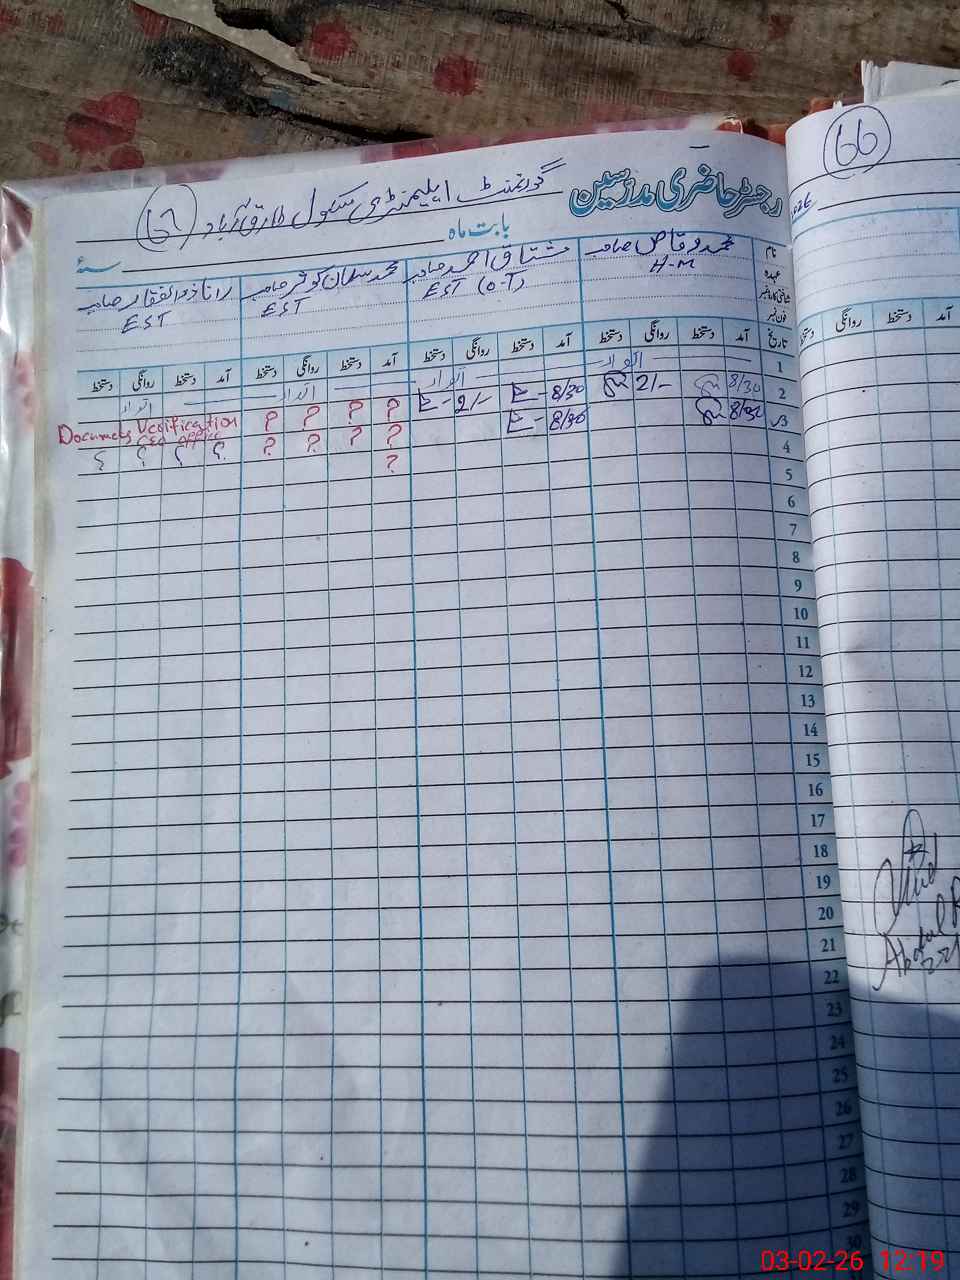 66
رجسٹر حاضری مدرسین
گورنمنٹ ایلیمنٹری سکول طارق آباد
67
بابت ماہ
سنہ
نام
محمد وقاص صاحب
مشتاق احمد صاحب
محمد سلمان کوثر صاحب
رانا ذوالفقار صاحب
عہدہ
H-M
EST (O-T)
EST
EST
شناختی کارڈ نمبر
فون نمبر
تاریخ آمد دستخط روانگی دستخط آمد دستخط روانگی دستخط آمد دستخط روانگی دستخط آمد دستخط روانگی دستخط
آمد دستخط روانگی دستخط
1 اتوار اتوار اتوار اتوار
2 8/30 2/- 8/30 2/- ? ? ? ?
Documents Verification
CEO Office
3 8/30 8/30 ? ? ? ? ؟ ؟ ؟ ؟
4 ?
5
6
7
8
9
10
11
12
13
14
15
16
17
18
19
20
21
22
23
24
25
26
27
28
29
30
Abdul
03-02-26 12:19